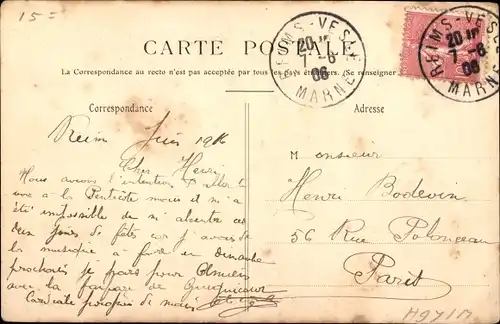 15=
CARTE POSTALE
REIMS-VESLE
20
7-6
06
MARNE
REIMS-VESLE
20
7-6
06
MARNE
La Correspondance au recto n'est pas acceptée par tous les pays étrangers. (Se renseigner
Correspondance
Adresse
Reim Juin 1906
Cher Henri
Nous avions l'intention d'aller te
voir a la Pentecôte mais il m'a
été impossible de m'absenter ces
deux jours de fêtes car j'avais de
la musique a faire en dimanche
prochain je pars pour
avec la fanfare de
Cordiale poignée de main
Monsieur
Henri Bodevin
56 Rue Polonceau
Paris